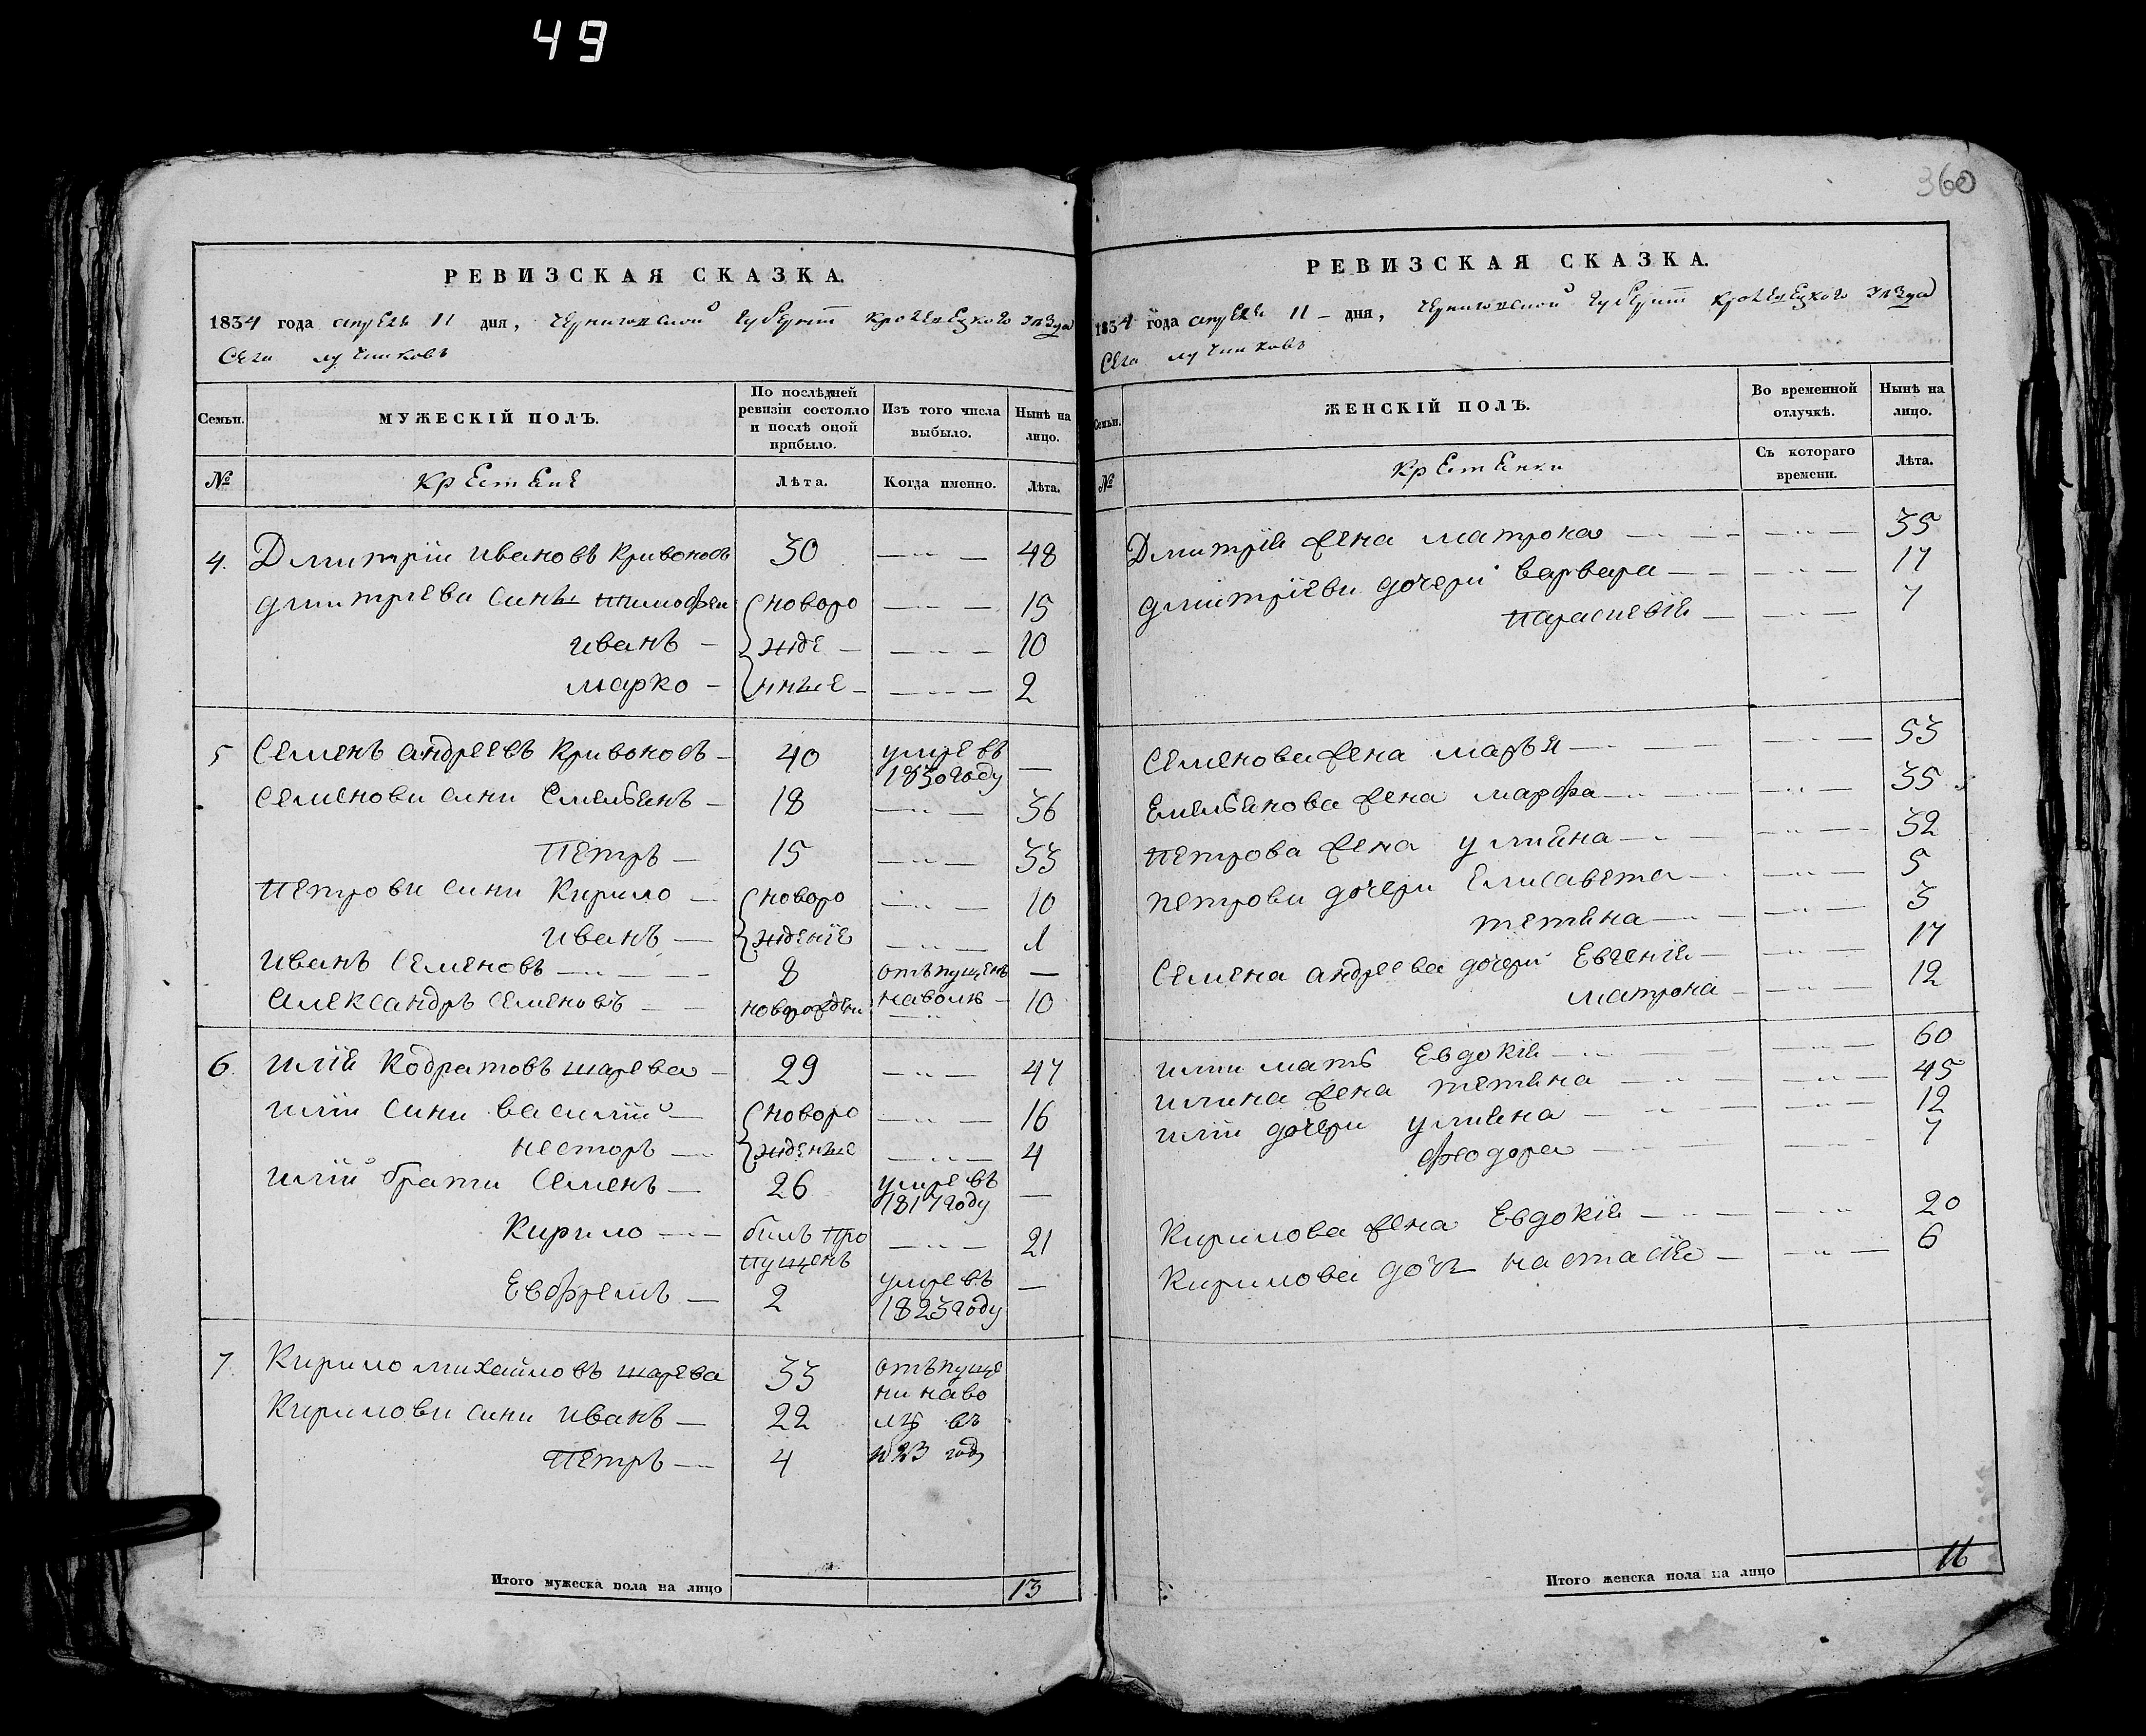 49
360
РЕВИЗСКАЯ СКАЗКА.
1834 года апреля 11 дня, Черниговской губернiи Кролевецкого уезда
Села Лучниковъ
Семьи. МУЖЕСКІЙ ПОЛЪ. По послѣдней ревизіи состояло и послѣ оной прибыло. Изъ того числа выбыло. Нынѣ на лицо.
№ крестяне Лѣта. Когда именно. Лѣта.
4. Дмитрiй Ивановъ Кривоносъ 30 — 〃 — 48
Дмитриеви сины Тимофей новоро — 〃 — 15
иванъ — жде — — 〃 — 10
марко — нные — — 〃 — 2
5 Семенъ андреевъ Кривоносъ — 40 умре въ 1830 году —
Семенови сини Емельянъ — 18 — 〃 — 36
Петръ — 15 — 〃 — 33
Петрови сини Кирило — новоро — 〃 — 10
иванъ — жденіе — 〃 — 1
иванъ Семеновъ — 〃 — 8 отъпущенъ —
Александръ Семеновъ — новорожден наволю — 10
6. илія Кодратовъ шарева — 29 — 〃 — 47
иліи сини василій — новоро — 〃 — 16
несторъ — жденые — 〃 — 4
илій брати Семенъ — 26 умре въ 1817 году —
Кирило — 〃 — билъ пропущенъ — 〃 — 21
Евфремъ — 2 умре въ 1823 году —
7. Кирило михайловъ шарева 33 отъпуще
Кирилови сини иванъ — 22 ни наво
Петръ — 4 лю въ 1823 году
Итого мужеска пола на лицо 13
РЕВИЗСКАЯ СКАЗКА.
1834 года апреля 11 — дня, Черниговской губернiи Кролевецкого уезда
Села Лучниковъ
Семьи. ЖЕНСКІЙ ПОЛЪ. Во временной отлучкѣ. Нынѣ на лицо.
№ крестянки Съ котораго времени. Лѣта.
Дмитрія жена матрона — 〃 — — 〃 — 35
Дмитріеви дочери варвара — — 〃 — 17
параскевія — — 〃 — 7
Семенова жена марья — 〃 — — 〃 — 53
Емельянова жена марфа — 〃 — — 〃 — 35
петрова жена улияна — 〃 — — 〃 — 32
петрови дочери Елисавета — 〃 — 5
тетяна — 〃 — — 〃 — 3
Семена андреева дочери Евгенія — — 〃 — 17
матрона — — 〃 — 12
илии мать Евдокія — 〃 — — 〃 — 60
илина жена тетяна — 〃 — — 〃 — 45
иліи дочери улияна — 〃 — — 〃 — 12
феодора — 〃 — — 〃 — 7
Кирилова жена Евдокія — 〃 — — 〃 20
Кирилова дочь настасія — — 〃 — 6
Итого женска пола на лицо 16